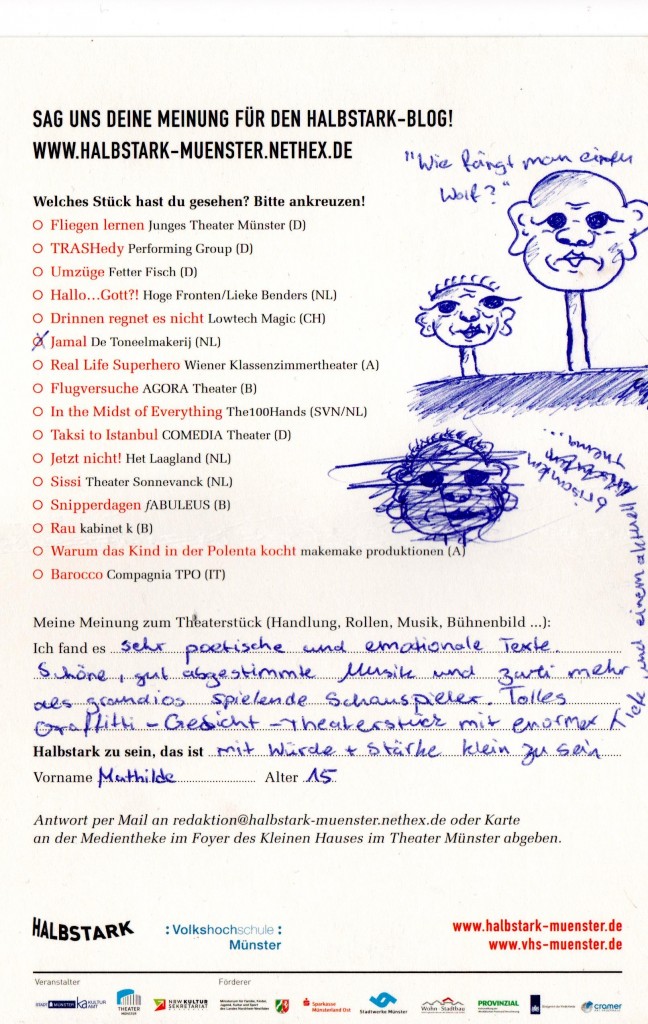 SAG UNS DEINE MEINUNG FÜR DEN HALBSTARK-BLOG!
WWW.HALBSTARK-MUENSTER.NETHEX.DE
"Wie fängt man einen
Wolf?"
Welches Stück hast du gesehen? Bitte ankreuzen!
Fliegen lernen Junges Theater Münster (D)
TRASHedy Performing Group (D)
Umzüge Fetter Fisch (D)
Hallo...Gott?! Hoge Fronten/Lieke Benders (NL)
Drinnen regnet es nicht Lowtech Magic (CH)
Jamal De Toneelmakerij (NL)
Real Life Superhero Wiener Klassenzimmertheater (A)
Flugversuche AGORA Theater (B)
In the Midst of Everything The100Hands (SVN/NL)
Taksi to Istanbul COMEDIA Theater (D)
Jetzt nicht! Het Laagland (NL)
Sissi Theater Sonnevanck (NL)
Snipperdagen fABULEUS (B)
Rau kabinet k (B)
Warum das Kind in der Polenta kocht makemake produktionen (A)
Barocco Compagnia TPO (IT)
Meine Meinung zum Theaterstück (Handlung, Rollen, Musik, Bühnenbild ...):
Ich fand es sehr poetische und emotionale Texte.
Schöne, gut abgestimmte Musik und zwei mehr
als grandios spielende Schauspieler. Tolles
Graffitti-Gesicht-Theaterstück mit enormer Tiefe
und einem aktuell
brisanten
Thema...
Halbstark zu sein, das ist mit Würde + Stärke klein zu sein
Vorname Mathilde Alter 15
Antwort per Mail an redaktion@halbstark-muenster.nethex.de oder Karte
an der Medientheke im Foyer des Kleinen Hauses im Theater Münster abgeben.
HALBSTARK
:Volkshochschule:
Münster
www.halbstark-muenster.de
www.vhs-muenster.de
Veranstalter
Förderer
STADT MÜNSTER KULTURAMT
THEATER MÜNSTER
NRW KULTUR SEKRETARIAT
Sparkasse Münsterland Ost
Stadtwerke Münster
Wohn + Stadtbau
PROVINZIAL
cramer